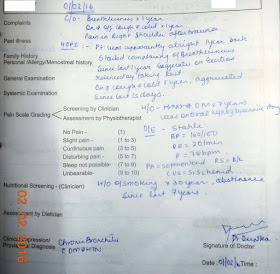 01/02/16
Complaints
C/O - Breathlessness x 1 year
On & off cough & cold x 1 year
Pain in Right Shoulder
Past Illness
HOPI - Pt was apparently alright 1 year back
Family History
Started complaining of Breathlessness
Personal /Allergy/Menstrual History
Since last 1 year aggravates on Exertion
General Examination
Relieved by taking Rest
On & off cough & cold x 1 year, aggravated
Systemic Examination
Since last 15 days.
Pain Scale Grading
Screening by Clinician
H/O - DM x 7 years
Assessment by Physiotherapist
was on oral
No Pain - (1)
O/E - Stable
Slight pain - (1 to 3)
BP = 160/100
Continuous pain - (3 to 5)
RR = 20/min
Disturbing pain - (5 to 7)
P = 78 bpm
Sleep not possible- (7 to 9)
PA = soft
Unbearable - (9 to 10)
CVS = S1S2
Nutritional Screening - (Clinician)
H/O of smoking x 30 year, abstinence
since last 7 years.
Assessment by Dietician
Clinical Impression/
Provisional Diagnosis
Chronic Bronchitis
Signature of Doctor
Date: 01/02/16 Time :
02 02 2016